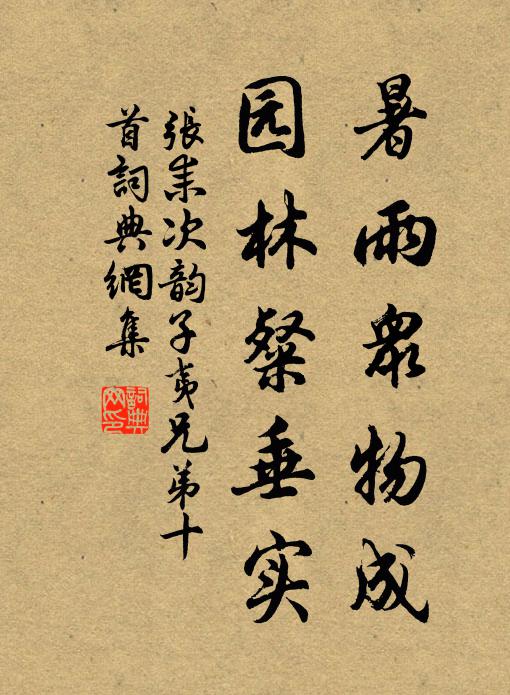 暑雨眾物成
园林粲垂实
張耒次韵子夷兄弟十
首詞典網集
詞典
网印